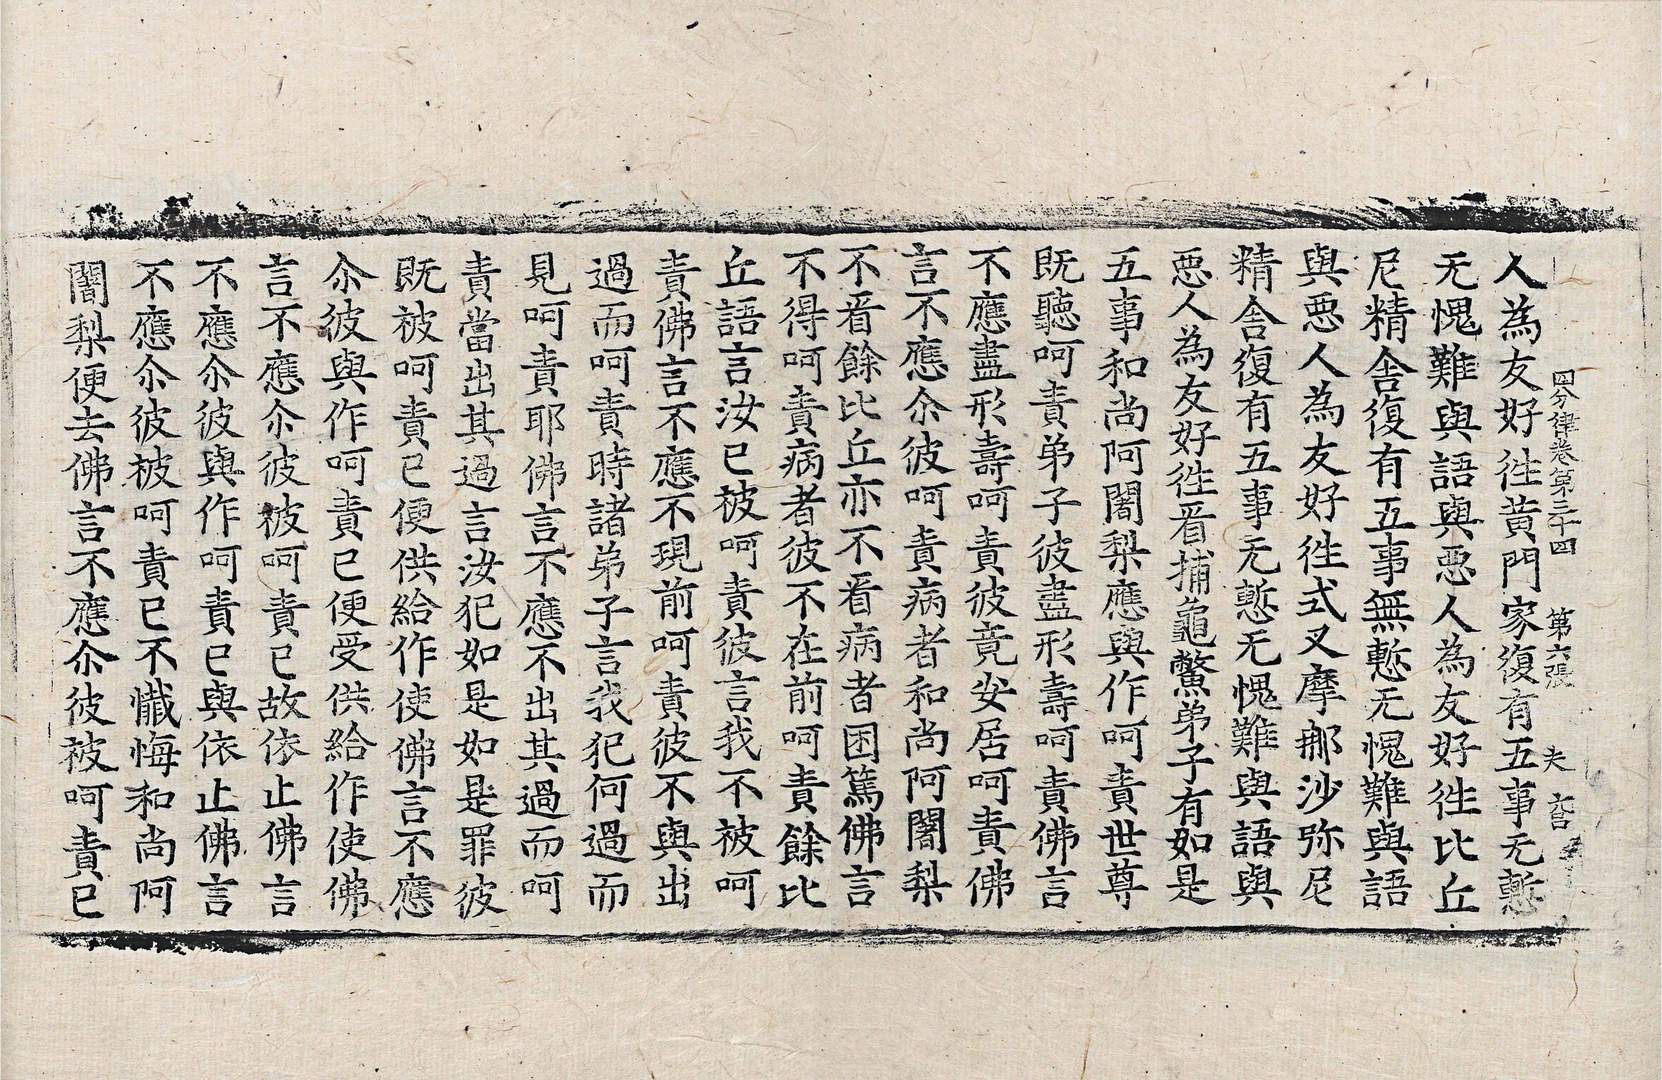 四分律卷第三十四　第六張　夫
人為友好徃黄門家復有五事无慙
无愧難與語與惡人為友好徃比丘
尼精舍復有五事無慙无愧難與語
與惡人為友好徃式叉摩那沙弥尼
精舍復有五事无慙无愧難與語與
惡人為友好徃看捕龜鱉弟子有如是
五事和尚阿闍梨應與作呵責世尊
既聽呵責弟子彼盡形壽呵責佛言
不應盡形壽呵責彼竟安居呵責佛
言不應尒彼呵責病者和尚阿闍梨
不看餘比丘亦不看病者困篤佛言
不得呵責病者彼不在前呵責餘比
丘語言汝已被呵責彼言我不被呵
責佛言不應不現前呵責彼不與出
過而呵責時諸弟子言我犯何過而
見呵責耶佛言不應不出其過而呵
責當出其過言汝犯如是如是罪彼
既被呵責已便供給作使佛言不應
尒彼與作呵責已便受供給作使佛
言不應尒彼被呵責已故依止佛言
不應尒彼與作呵責已與依止佛言
不應尒彼被呵責已不懺悔和尚阿
闍梨便去佛言不應尒彼被呵責已